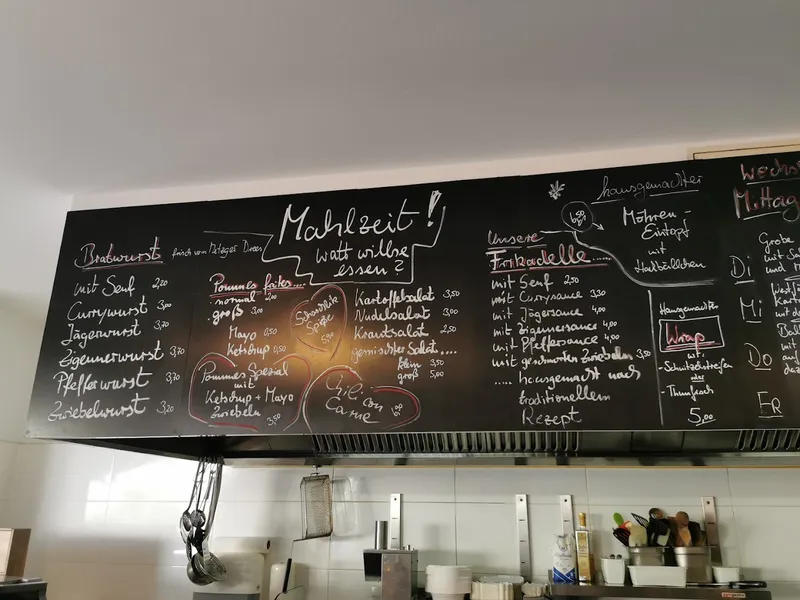 Mahlzeit!
watt willse
essen?
Bratwurst frisch vom Metzger Drees
mit Senf 2,20
Currywurst 3,00
Jägerwurst 3,70
Zigeunerwurst 3,70
Pfefferwurst 3,70
Zwiebelwurst 3,20
Pommes frites...
normal 2,00
groß 3,00
Mayo 0,50
Ketchup 0,50
Schaschlik
Spieße
Pommes Spezial
mit
Ketchup + Mayo
Zwiebeln 3,50
Kartoffelsalat 3,50
Nudelsalat 3,00
Krautsalat 2,50
gemischter Salat....
klein 3,50
groß 5,00
Chili con
Carne
Unsere
Frikadelle.....
mit Senf 2,50
mit Currysauce 3,30
mit Jägersauce 4,00
mit Zigeunersauce 4,00
mit Pfeffersauce 4,00
mit geschmorten Zwiebeln 3,50
.... hausgemacht nach
traditionellem
Rezept
hausgemachter
Möhren-
Eintopf
mit
Hackbällchen
Hausgemachter
Wrap
mit
-Schnitzelstreifen
oder
-Thunfisch
5,00
Grobe
Di
Mi
Do
Fr